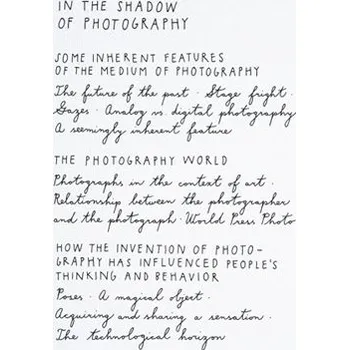 IN THE SHADOW
OF PHOTOGRAPHY
SOME INHERENT FEATURES
OF THE MEDIUM OF PHOTOGRAPHY
The future of the past · Stage fright ·
Gazes · Analog vs. digital photography
A seemingly inherent feature
THE PHOTOGRAPHY WORLD
Photographs in the context of art ·
Relationship between the photographer
and the photograph · World Press Photo
HOW THE INVENTION OF PHOTO-
GRAPHY HAS INFLUENCED PEOPLE'S
THINKING AND BEHAVIOR
Poses · A magical object ·
Acquiring and sharing a sensation ·
The technological horizon